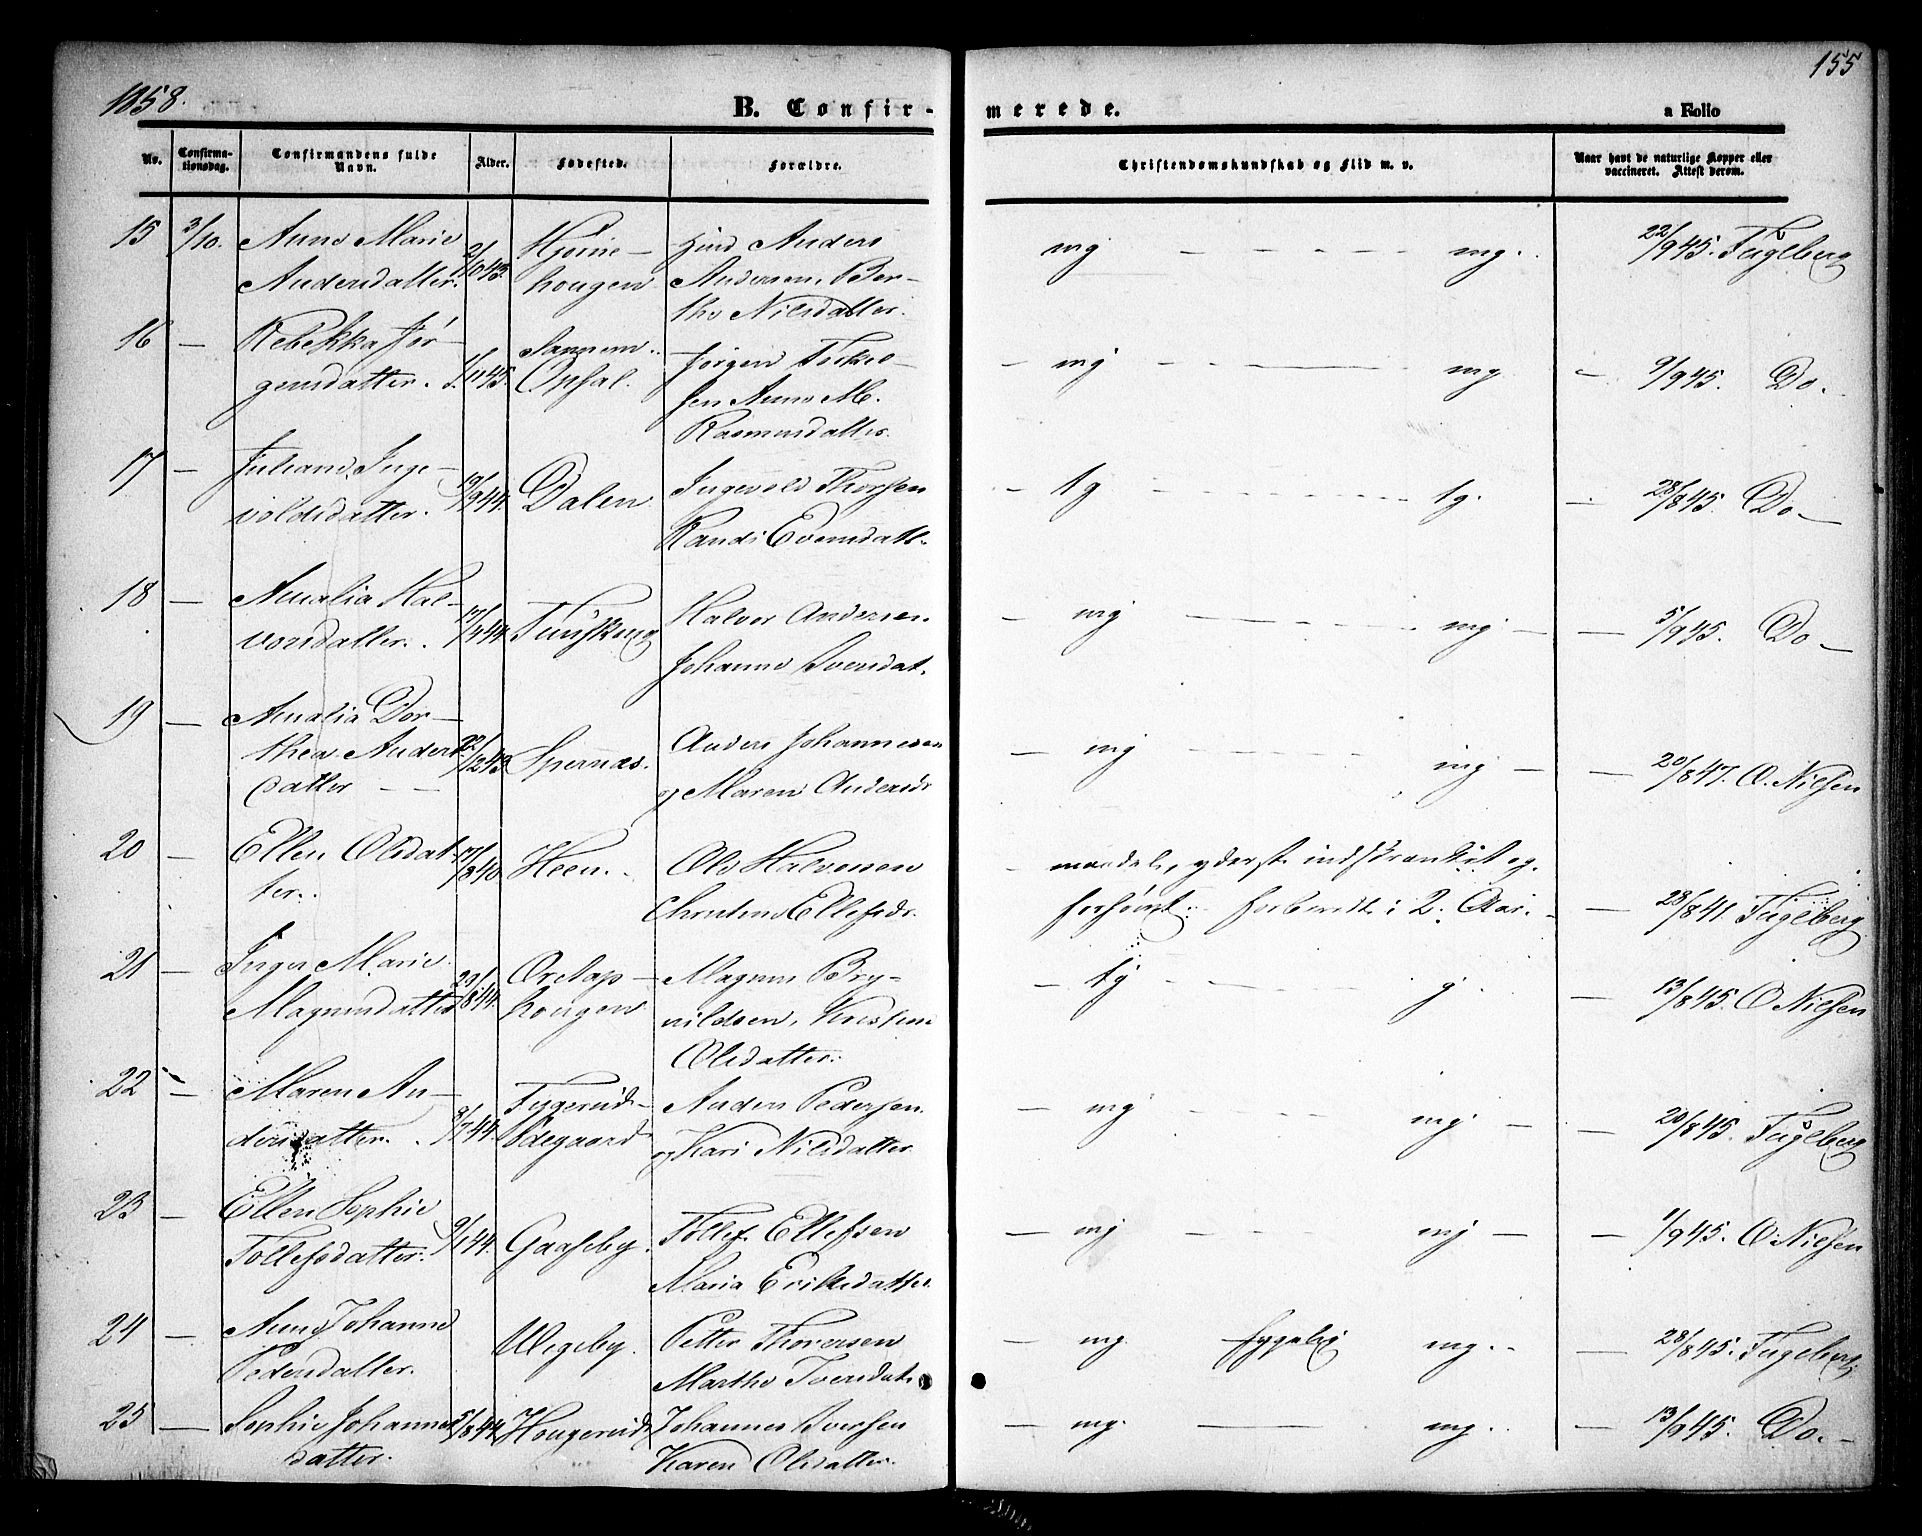 1858.
155
B. Confir-
merede.
a Folio
No.
Confirma-
tionsdag.
Confirmandens fulde
Navn.
Alder.
Fødested.
Forældre.
Christendomskundskab og Flid m. v.
Naar havt de naturlige Kopper eller
vaccineret. Attest derom.
15 3/10. Anne Marie
Andersdatter. 2/10 43. hougen
Anders
Andersen, Ber-
the Nilsdatter.
mg - - - - - mg. 22/9 45. Fugleberg
16 - Rebekka Jør-
gensdatter. 1/11 45. Opsal.
Jørgen Terkel-
sen Anne M.
Rasmusdatter.
- mg - - - - mg - 9/9 45. Do.
17 - Juliane Inge-
voldsdatter. 19/9 44. Dalen
Ingevold Thorsen
Randi Evensdatt.
- tg - - - - tg. - 28/8 45. Do -
18 - Amalia Hal-
vorsdatter. 17/4 44.
Halvor Andersen
Johanne Iversdat.
- mg - - - - mg - - 5/9 45. Do -
19 - Amalia Dor-
thea Anders
datter 22/12 43. Spernæs.
Anders Johannesen
og Maren Andersdr
- mg - - - - mg - - 20/8 47. O. Nielsen
20 - Ellen Olsdat-
ter. 17/8 40. Heen.
Ole Halvorsen
Christine Ellefsdr.
- maadel., yderst indskrænket og
forsømt. forberedt i 2. Aar. - 28/8 41. Fugleberg
21 - Inger Marie
Magnusdatter 23/8 44. Oretap-
hougen
Magnus Bry-
nildsen, Kirsten
Olsdatter.
- tg - - - - g. - 13/8 45. O Nielsen
22 - Maren An-
dersdatter. 3/7 44. Tegerud-
ødegaard
Anders Pedersen
og Kari Nilsdatter
- mg - - - - mg - - 20/8 45. Fugleberg
23 - Ellen Sophie
Tollefsdatter. 9/1 44. Gaaseby.
Tollef Ellefsen
Maria Eriksdatter
- mg - - - mg - - 1/9 45. O. Nielsen
24 - Anne Johanne
Pedersdatter. Wegeby.
Petter Thoresen
Marthe Iversdat.
- mg. hyggelig mg. - 28/8 45. Fugleberg
25 - Sophie Johannes
datter. 5/8 44. Hougerud
Johannes Iversen
Karen Olsdatter
- mg. - mg. - 13/9 45. Do. -